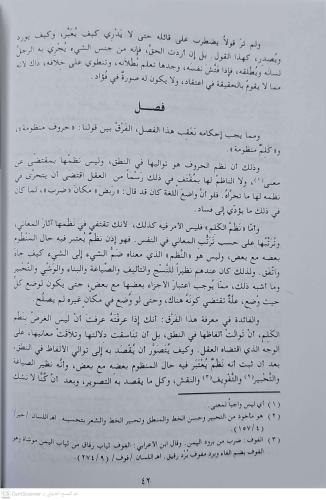 ولم تر قولاً يضطرب على قائله حتى لا يَدْري كيف يُعبِّر، وكيف يورد
ويُصدِر، كهذا القول. بل إن أردتَ الحقَّ، فإنه من جنس الشيء يُجري به الرجلُ
لسانَه ويُطْلقه، فإذا فتَّش نفسَه، وجدها تعلم بُطلانَه، وتنطوي على خلافه، ذاك لأنه
مما لا يقومُ بالحقيقة في اعتقاد، ولا يكون له صورةٌ في فُؤاد.
فصل
ومما يجب إحكامه بعَقِب هذا الفصل، الفَرْقُ بين قولنا: «حروف منظومة»،
و«كَلِمٌ منظومة».
وذلك أن نظم الحروف هو تواليها في النطق، وليس نظمُها بمقتضًى عن
معنى(١)، ولا الناظم لها بمُقْتفٍ في ذلك رَسْماً من العقل اقتضى أن يتحرَّى في
نظمه لها ما تحرَّاهُ. فلو أنّ واضعَ اللغة كان قد قال: «رَبَضَ» مكانَ «ضرب»، لما كان
في ذلك ما يؤدي إلى فساد.
وأمّا «نَظْمُ الكَلِم» فليس الأمر فيه كذلك، لأنك تقتفي في نظمها آثارَ المعاني،
وتُرتِّبُها على حسبِ تَرَتُّب المعاني في النفس. فهو إذن نظْمٌ يعتبر فيه حال المَنْظُوم
بعضه مع بعض، وليس هو «النَّظْم» الذي معناه ضَمُّ الشيء إلى الشيء كيف جاء
واتَّفق. ولذلك كان عندهم نظيراً للنَّسْج والتأليف والصِّياغة والبناء والوَشْي والتَّحْبير
وما أشبه ذلك، ممَّا يوجب اعتبارَ الأجزاء بعضها مع بعض، حتى يكون لوضع كلٍّ
حيث وُضِع، علَّة تقتضي كونَهُ هناك، وحتى لو وُضع في مكانٍ غيرِه لم يصلُح
والفائدة في معرفة هذا الفرْق: أنك إذا عرَفْتَهُ عرفتَ أنْ ليس الغرضُ بنظم
الكلم، أنْ تَوالَتْ ألفاظها في النطق، بل أن تناسقت دلالتها وتلاقتْ معانيها، على
الوجه الذي اقتضاهُ العقل. وكيف يُتَصَوَّر أن يُقْصَد به إلى توالي الألفاظ في النطق،
بعد أن ثبت أنه نَظْمٌ يُعْتَبَر فيه حال المنظوم بعضه مع بعض، وأنَّه نظير الصياغة
والتَّحْبير(٢) والتَّفْويف(٣) والنقش، وكلّ ما يقصد به التصوير، وبعد أنْ كُنّا لا نَشك
(١) أي ليس واجباً لمعنى.
(٢) هو مأخوذ من التحبير وحسن الخط والمنطق وتحبير الخط والشعر بتحسينه اهـ اللسان /حبر/
(٤/١٥٧)
(٣) الفوف: ضرب من برود اليمن. وقال ابن الأعرابي: الفوف ثياب رقاق من ثياب اليمن موشاة وهو
الفوف بضم الفاء وبرد مفوف بُرد رقيق. اهـ اللسان /فوف/ (٩/٢٧٤).
٤٢
CamScanner